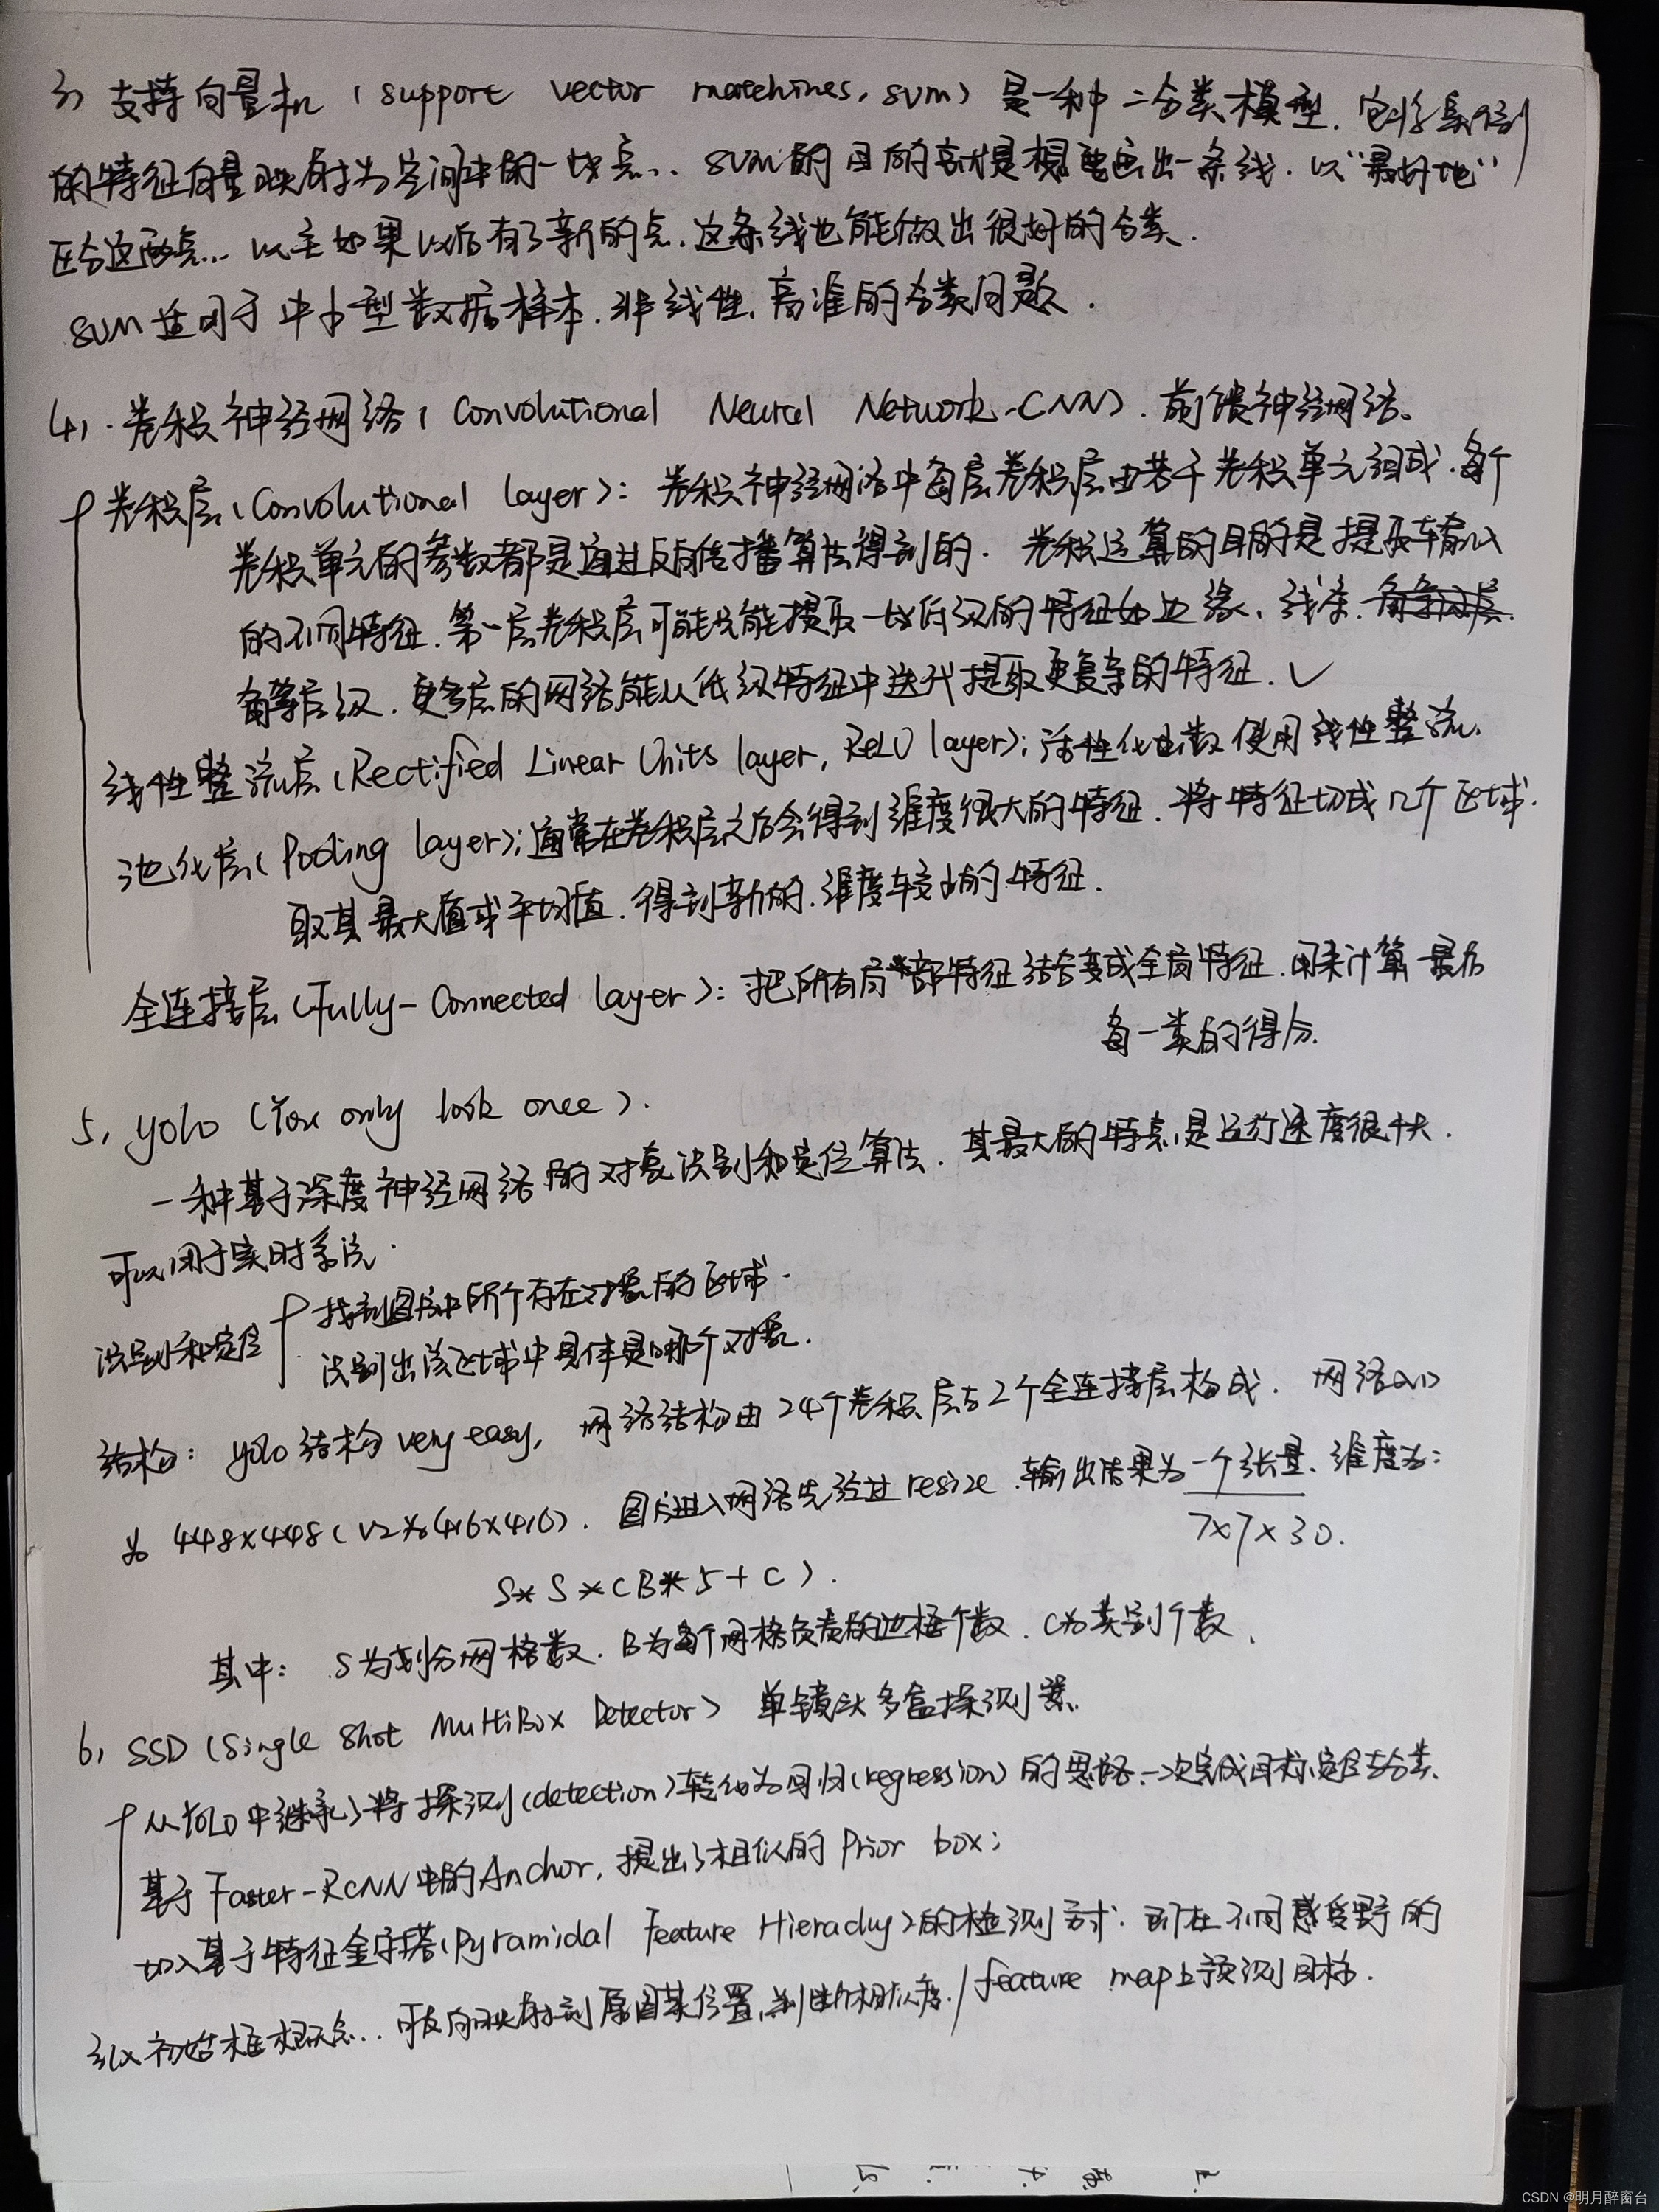 3) 支持向量机 (support vector matchines, svm) 是一种二分类模型. 它将实例
的特征向量映射为空间中的一些点.. SVM的目的就是想要画出一条线. 以"最好地"
区分这两点... 以至如果以后有了新的点. 这条线也能做出很好的分类.
SVM适用于中小型数据样本. 非线性. 高准的分类问题.
4). 卷积神经网络 (Convolutional Neural Network. CNN). 前馈神经网络。
卷积层 (Convolutional layer): 卷积神经网络中每层卷积层由若干卷积单元组成. 每个
卷积单元的参数都是通过反向传播算法得到的. 卷积运算的目的是提取输入
的不同特征. 第一层卷积层可能只能提取一些低级的特征如边缘、线条.
角等层级. 更多层的网络能从低级特征中迭代提取更复杂的特征. ✓
线性整流层 (Rectified Linear Units layer, ReLU layer): 活性化函数使用线性整流.
池化层 (Pooling layer): 通常在卷积层之后会得到维度很大的特征. 将特征切成几个区域.
取其最大值或平均值. 得到新的. 维度较小的特征.
全连接层 (Fully-Connected layer): 把所有局部特征结合变成全局特征. 用来计算最后
每一类的得分.
5, yolo (You only look once).
一种基于深度神经网络的对象识别和定位算法. 其最大的特点是运行速度很快.
可以用于实时系统.
识别和定位
找到图片中所个存在对象的区域.
识别出该区域中具体是哪个对象.
结构: yolo结构 very easy, 网络结构由24个卷积层与2个全连接层构成. 网络入口
为 448x448 (V2为416x416). 图片进入网络先经过resize. 输出结果为一个张量、维度为:
7x7x30.
S*S*(B*5+C).
其中: S为划分网格数. B为每个网格负责的边框个数. C为类别个数.
6, SSD (Single Shot MultiBox Detector) 单镜头多盒探测器.
从YOLO中继承了将探测(detection)转化为回归(regression)的思路. 一次完成目标定位与分类.
基于Faster-RCNN中的Anchor, 提出了相似的 Prior box;
加入基于特征金字塔(Pyramidal Feature Hierachy)的检测方式. 即在不同感受野的
feature map上预测目标.
引入初始框概念... 可反向映射到原图某位置, 并进行相似度. /
CSDN @明月醉窗台